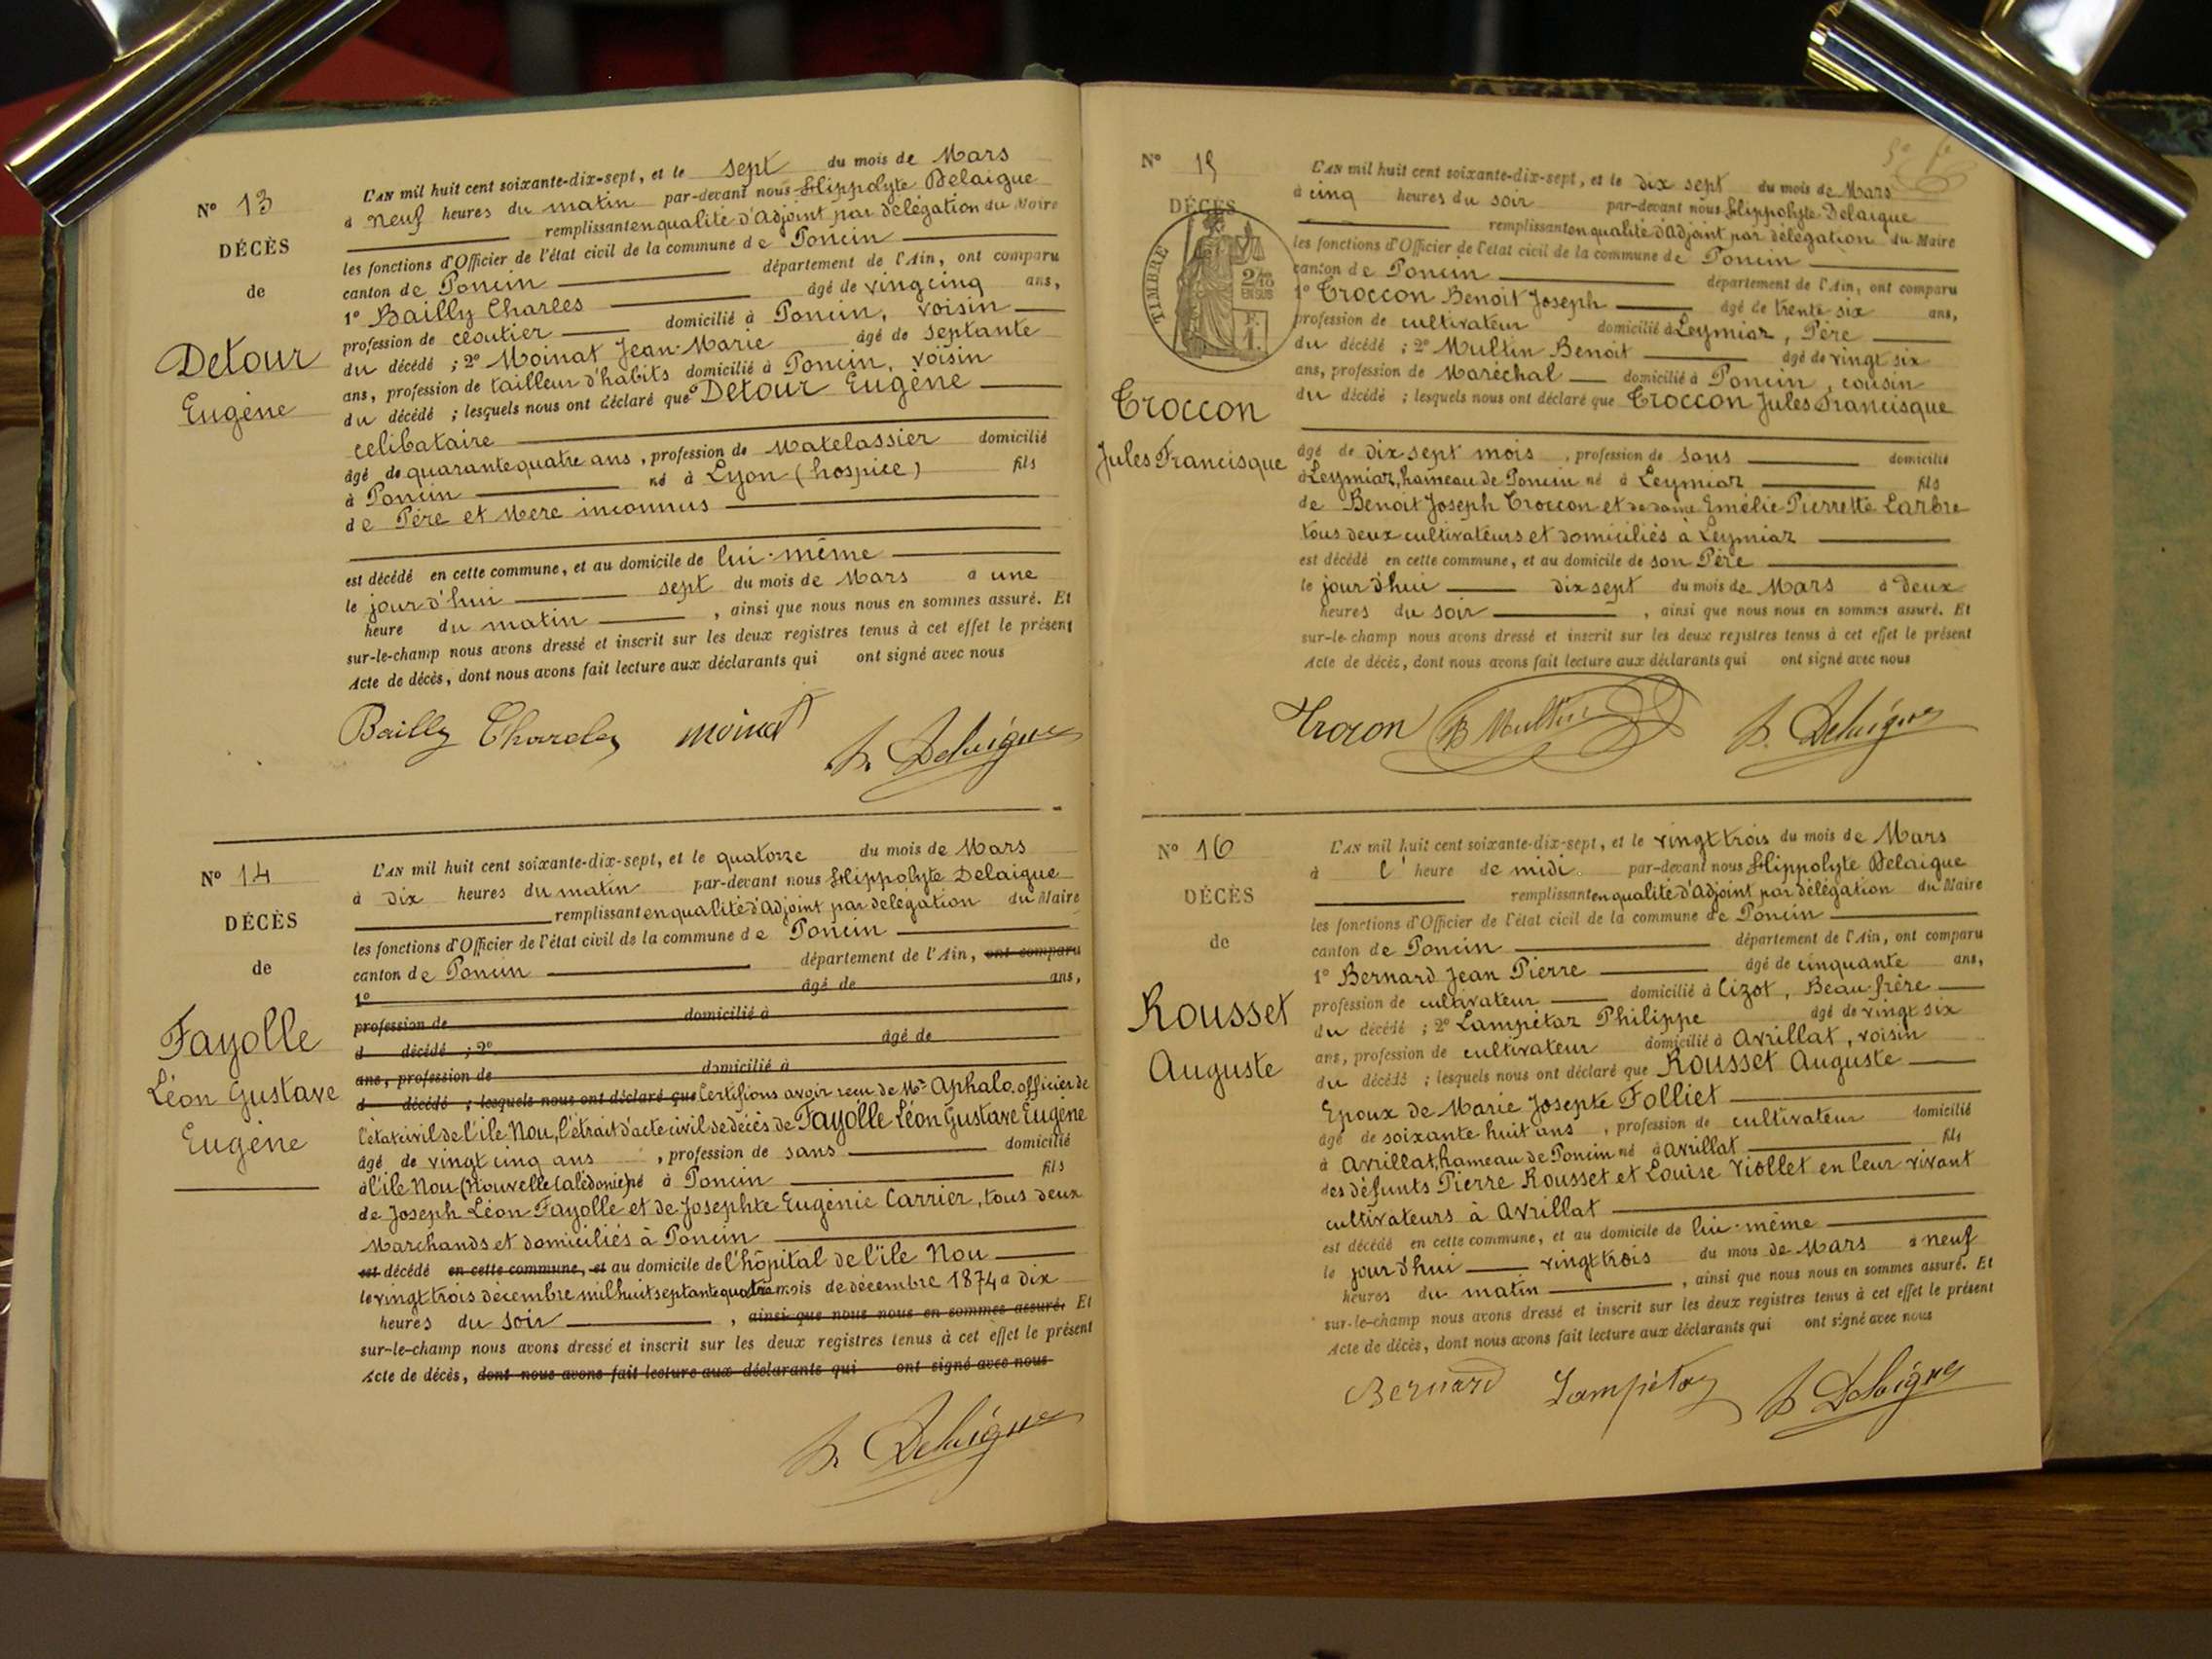 N° 13
DÉCÈS
de
Detour
Eugène
L'AN mil huit cent soixante-dix-sept, et le sept du mois de Mars
à neuf heures du matin par-devant nous Hippolyte Delaigue
remplissant en qualité d'Adjoint par délégation du Maire
les fonctions d'Officier de l'état civil de la commune de Poncin
canton de Poncin département de l'Ain, ont comparu
1° Bailly Charles âgé de vingcinq ans,
profession de cloutier domicilié à Poncin, voisin
du décédé ; 2° Moinat Jean-Marie âgé de septante
ans, profession de tailleur d'habits domicilié à Poncin, voisin
du décédé ; lesquels nous ont déclaré que Detour Eugène
celibataire
âgé de quarante quatre ans, profession de Matelassier domicilié
à Poncin né à Lyon (hospice) fils
de Père et Mère inconnus
est décédé en cette commune, et au domicile de lui-même
le jourd'hui sept du mois de Mars à une
heure du matin, ainsi que nous nous en sommes assuré. Et
sur-le-champ nous avons dressé et inscrit sur les deux registres tenus à cet effet le présent
Acte de décès, dont nous avons fait lecture aux déclarants qui ont signé avec nous
Bailly Charles moinat h. Delaigue
N° 14
DÉCÈS
de
Fayolle
Léon Gustave
Eugène
L'AN mil huit cent soixante-dix-sept, et le quatorze du mois de Mars
à dix heures du matin par-devant nous Hippolyte Delaigue
remplissant en qualité d'Adjoint par délégation du Maire
les fonctions d'Officier de l'état civil de la commune de Poncin
canton de Poncin département de l'Ain, ont comparu
1° âgé de ans,
profession de domicilié à
d décédé ; 2° âgé de
ans, profession de domicilié à
d décédé ; lesquels nous ont déclaré que Certifions avoir reçu de Mr Aphalo, officier de
l'état civil de l'ile Nou, l'étrait d'acte civil de décès de Fayolle Léon Gustave Eugène
âgé de vingt cinq ans, profession de sans domicilié
à l'ile Nou (Nouvelle Calédonie) né à Poncin fils
de Joseph Léon Fayolle et de Josephte Eugénie Carrier, tous deux
Marchands et domiciliés à Poncin
est décédé en cette commune, et au domicile de l'hôpital de l'ile Nou
le vingt trois décembre mil huit septante quatre mois de décembre 1874 à dix
heures du soir, ainsi que nous nous en sommes assuré. Et
sur-le-champ nous avons dressé et inscrit sur les deux registres tenus à cet effet le présent
Acte de décès, dont nous avons fait lecture aux déclarants qui ont signé avec nous
h. Delaigue
N° 15
DÉCÈS
TIMBRE
2/10
EN SUS
F.
1.
Croccon
Jules Francisque
L'AN mil huit cent soixante-dix-sept, et le dix sept du mois de Mars
à cinq heures du soir par-devant nous Hippolyte Delaigue
remplissant en qualité d'Adjoint par délégation du Maire
les fonctions d'Officier de l'état civil de la commune de Poncin
canton de Poncin département de l'Ain, ont comparu
1° Croccon Benoit Joseph âgé de trente six ans,
profession de cultivateur domicilié à Leymiaz, Père
du décédé ; 2° Multin Benoit âgé de vingt six
ans, profession de Maréchal domicilié à Poncin, cousin
du décédé ; lesquels nous ont déclaré que Croccon Jules Francisque
âgé de dix sept mois, profession de sans domicilié
à Leymiaz, hameau de Poncin né à Leymiaz fils
de Benoit Joseph Croccon et de dame Emélie Pierrette Larbre
tous deux cultivateurs et domiciliés à Leymiaz
est décédé en cette commune, et au domicile de son Père
le jourd'hui dix sept du mois de Mars à deux
heures du soir, ainsi que nous nous en sommes assuré. Et
sur-le-champ nous avons dressé et inscrit sur les deux registres tenus à cet effet le présent
Acte de décès, dont nous avons fait lecture aux déclarants qui ont signé avec nous
B Multin h. Delaigue
N° 16
DÉCÈS
de
Rousset
Auguste
L'AN mil huit cent soixante-dix-sept, et le vingt trois du mois de Mars
à l' heure de midi. par-devant nous Hippolyte Delaigue
remplissant en qualité d'Adjoint par délégation du Maire
les fonctions d'Officier de l'état civil de la commune de Poncin
canton de Poncin département de l'Ain, ont comparu
1° Bernard Jean Pierre âgé de cinquante ans,
profession de cultivateur domicilié à Cizot, Beau-frère
du décédé ; 2° Lampétaz Philippe âgé de vingt six
ans, profession de cultivateur domicilié à Avrillat, voisin
du décédé ; lesquels nous ont déclaré que Rousset Auguste
Epoux de Marie Josepte Folliet
âgé de soixante huit ans, profession de cultivateur domicilié
à Avrillat, hameau de Poncin né à Avrillat fils
des défunts Pierre Rousset et Louise Viollet en leur vivant
cultivateurs à Avrillat
est décédé en cette commune, et au domicile de lui-même
le jourd'hui vingt trois du mois de Mars à neuf
heures du matin, ainsi que nous nous en sommes assuré. Et
sur-le-champ nous avons dressé et inscrit sur les deux registres tenus à cet effet le présent
Acte de décès, dont nous avons fait lecture aux déclarants qui ont signé avec nous
Bernard Lampétaz h Delaigue